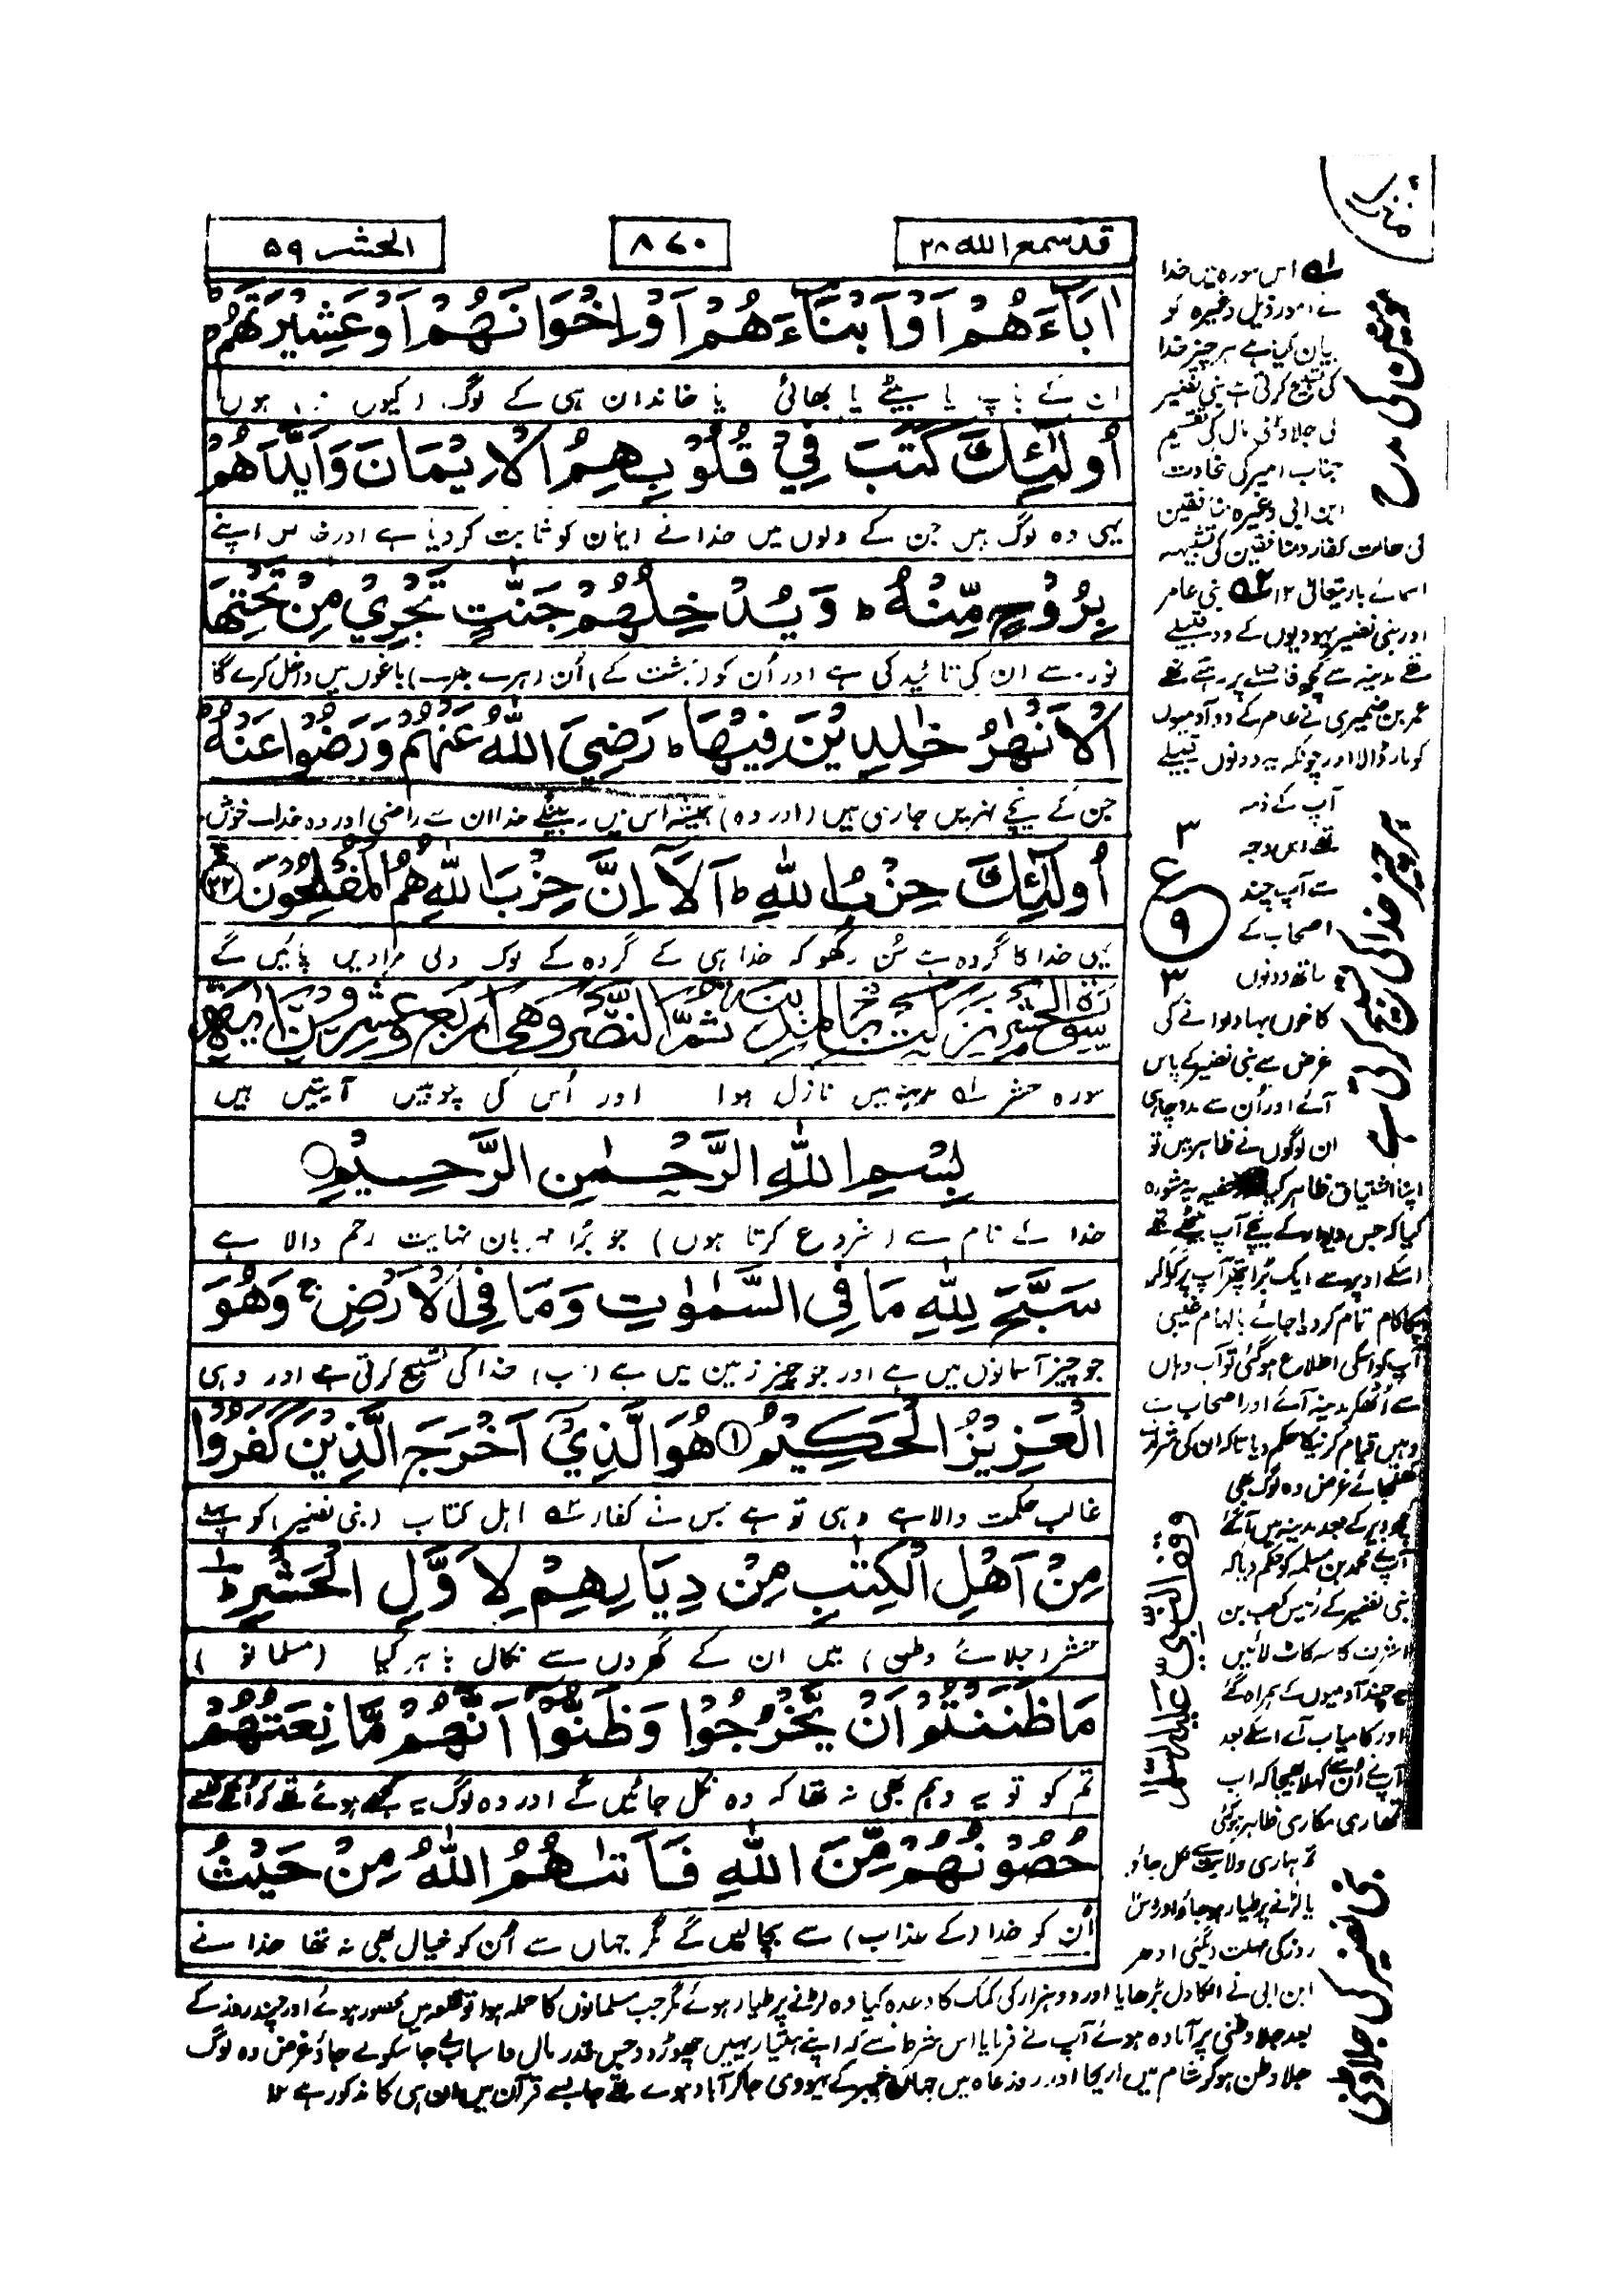 قد سمع الله ۲۸
۸۷۰
الحشر ۵۹
اٰبَآءَهُمْ اَوْ اَبْنَآءَهُمْ اَوْ اِخْوَانَهُمْ اَوْ عَشِيْرَتَهُمْ ؕ
ان کے باپ یا بیٹے یا بھائی یا خاندان ہی کے لوگ (کیوں نہ) ہوں
اُولٰٓئِكَ كَتَبَ فِيْ قُلُوْبِهِمُ الْاِيْمَانَ وَاَيَّدَهُمْ
یہی وہ لوگ ہیں جن کے دلوں میں خدا نے ایمان کو ثابت کر دیا ہے اور خاص اپنے
بِرُوْحٍ مِّنْهُ ؕ وَيُدْخِلُهُمْ جَنّٰتٍ تَجْرِيْ مِنْ تَحْتِهَا
نور سے ان کی تائید کی ہے اور اُن کو (بہشت کے) اُن (ہرے بھرے) باغوں میں داخل کرے گا
الْاَنْهٰرُ خٰلِدِيْنَ فِيْهَا ؕ رَضِيَ اللّٰهُ عَنْهُمْ وَرَضُوْا عَنْهُ ؕ
جن کے نیچے نہریں جاری ہیں (اور وہ) ہمیشہ اس میں رہینگے خدا ان سے راضی اور وہ خدا سے خوش
اُولٰٓئِكَ حِزْبُ اللّٰهِ ؕ اَلَاۤ اِنَّ حِزْبَ اللّٰهِ هُمُ الْمُفْلِحُوْنَ ۲۲
یہی خدا کا گروہ ہے سُن رکھو کہ خدا ہی کے گروہ کے لوگ دلی مرادیں پائیں گے
سورہ حشر ۱ مدینہ میں نازل ہوا اور اُس کی چوبیس آیتیں ہیں
بِسْمِ اللّٰهِ الرَّحْمٰنِ الرَّحِيْمِ
خدا کے نام سے (شروع کرتا ہوں) جو بڑا مہربان نہایت رحم والا ہے
سَبَّحَ لِلّٰهِ مَا فِي السَّمٰوٰتِ وَمَا فِي الْاَرْضِ ۚ وَهُوَ
جو چیز آسمانوں میں ہے اور جو چیز زمین میں ہے (سب) خدا کی تسبیح کرتی ہے اور وہی
الْعَزِيْزُ الْحَكِيْمُ ۱ هُوَ الَّذِيْۤ اَخْرَجَ الَّذِيْنَ كَفَرُوْا
غالب حکمت والا ہے وہی تو ہے جس نے کفار ۲ اہل کتاب (بنی نضیر) کو پہلے
مِنْ اَهْلِ الْكِتٰبِ مِنْ دِيَارِهِمْ لِاَوَّلِ الْحَشْرِ ؕ
حشر (جلائے وطن) میں ان کے گھروں سے نکال باہر کیا (مسلمانو)
مَا ظَنَنْتُمْ اَنْ يَّخْرُجُوْا وَظَنُّوْۤا اَنَّهُمْ مَّانِعَتُهُمْ
تم کو تو یہ وہم بھی نہ تھا کہ وہ نکل جائیں گے اور وہ لوگ یہ سمجھے ہوئے تھے کہ اُنکے قلعے
حُصُوْنُهُمْ مِّنَ اللّٰهِ فَاَتٰىهُمُ اللّٰهُ مِنْ حَيْثُ
اُن کو خدا (کے عذاب) سے بچالیں گے مگر جہاں سے اُن کو خیال بھی نہ تھا خدا نے
منزل
مومنین کی مدح
ہر چیز خدا کی تسبیح کرتی ہے
بنی نضیر کی جلاوطنی
وقف النبی علیہ السلام
۳
ع
۹
۳
۱ اس سورہ میں خدا
نے امور ذیل وغیرہ کو
بیان کیا ہے ہر چیز خدا
کی تسبیح کرتی ہے بنی نضیر
کی جلاوطنی مال کی تقسیم
جناب امیر کی سخاوت
ابن ابی وغیرہ منافقین
کی حالت کفار و منافقین کی تشبیہ
اسمائے باریتعالیٰ ۱۲ ۲ بنی عامر
اور بنی نضیر یہودیوں کے دو قبیلے
تھے مدینہ سے کچھ فاصلے پر رہتے تھے
عمر بن ضمیری نے عامر کے دو آدمیوں
کو مار ڈالا اور چونکہ یہ دونوں قبیلے
آپ کے ذمہ
تھے اس وجہ
سے آپ چند
اصحاب کے
ساتھ دونوں
کا خون بہا دلوانے کی
غرض سے بنی نضیر کے پاس
آئے اور اُن سے مدد چاہی
ان لوگوں نے ظاہر میں تو
اپنا اشتیاق ظاہر کیا خفیہ یہ مشورہ
کیا کہ جس دیوار کے نیچے آپ بیٹھے تھے
اسکے اوپر سے ایک بڑا پتھر آپ پر گرا کر
آپکا کام تمام کر دیا جائے بالہام غیبی
آپ کو اسکی اطلاع ہوگئی تو آپ وہاں
سے اُٹھکر مدینہ آئے اور اصحاب سے
وہیں قیام کرنیکا حکم دیا تاکہ ان کی شرارت
کھلجائے غرض وہ لوگ بھی
کچھ دیر کے بعد مدینہ میں آگئے
آپنے محمد بن مسلمہ کو حکم دیا کہ
بنی نضیر کے رئیس کعب بن
اشرف کا سر کاٹ لائیں
یہ چند آدمیوں کے ہمراہ گئے
اور کامیاب آئے اسکے بعد
آپنے اُنسے کہلا بھیجا کہ اب
تمھاری مکاری ظاہر ہوگئی
تم ہماری ولایت سے نکل جاؤ
یا لڑنے پر طیار ہو جاؤ اور دس
روز کی مہلت دیگئی ادھر
ابن ابی نے انکا دل بڑھایا اور دو ہزار کی کمک کا وعدہ کیا وہ لڑنے پر طیار ہوئے مگر جب مسلمانوں کا حملہ ہوا تو قلعہ میں محصور ہوئے اور چند روز کے
بعد جلاوطنی پر آمادہ ہوئے آپ نے فرمایا اس شرط سے کہ اپنے ہتیار یہیں چھوڑ دو جس قدر مال و اسباب لے جا سکو لے جاؤ غرض وہ لوگ
جلاوطن ہوکر شام میں اریحا اور روزعاہ میں جہاں خیبر کے یہودی جاکر آباد ہوے تھے جا بسے قرآن میں ان ہی کا مذکور ہے ۱۲